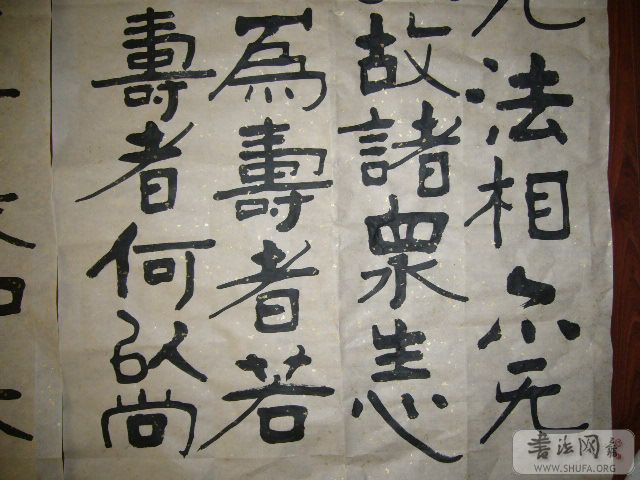 无法相亦无
故諸眾生心
為壽者若
壽者何以尚
書法网
WWW.SHUFA.ORG